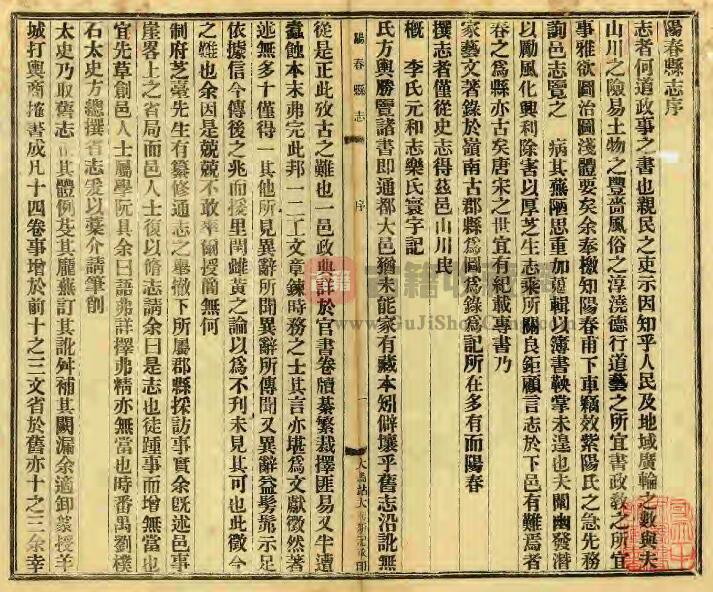 陽春縣志序
志者何道政事之書也親民之吏示因知乎人民及地域廣輪之數與夫
山川之險易土物之豐嗇風俗之淳澆德行道藝之所宜書政教之所宜
事雅欲圖治圖淺體要矣余奉檄知陽春甫下車竊效紫陽氏之急先務
詢邑志覽之 病其蕪陋思重加葺輯以簿書鞅掌未遑也夫闡幽發潛
以勵風化興利除害以厚芝生志乘所關良鉅顧言志於下邑有難焉者
春之爲縣亦古矣唐宋之世宜有紀載專書乃
家藝文著錄於嶺南古郡縣爲圖爲錄爲記所在多有而陽春
撰志者僅從史志得茲邑山川戾
概 李氏元和志樂氏寰宇記
氏方輿勝覽諸書即通都大邑猶未能家有藏本矧僻壤乎舊志沿訛無
陽春縣志 序 一
從是正此攷古之難也一邑政典詳於官書卷牘綦繁裁擇匪易又半遭
蠹蝕本末弗完此邦一二工文章鍊時務之士其言亦堪爲文獻徵然著
述無多十僅得一其他所見異辭所聞異辭所傳聞又異辭益髣髴示足
依據信今傳後之兆而援里閈雌黃之論以爲不刋未見其可也此徵今
之難也余因是兢兢不敢率爾授簡無何
制府芝臺先生有纂修通志之舉檄下所屬郡縣採訪事實余旣述邑事
崖畧上之省局而邑人士復以脩志請余曰是志也徒踵事而增無當也
宜先草創邑人士屬學阮具余曰語弗詳擇弗精亦無當也時番禺劉樸
石太史方總撰省志爰以藁介請筆削
太史乃取舊志 其體例芟其龐蕪訂其訛舛補其闕漏余適卸篆授羊
城打輿商搉書成凡十四卷事增於前十之三文省於舊亦十之三余幸
古籍
www.GuJiShu.com